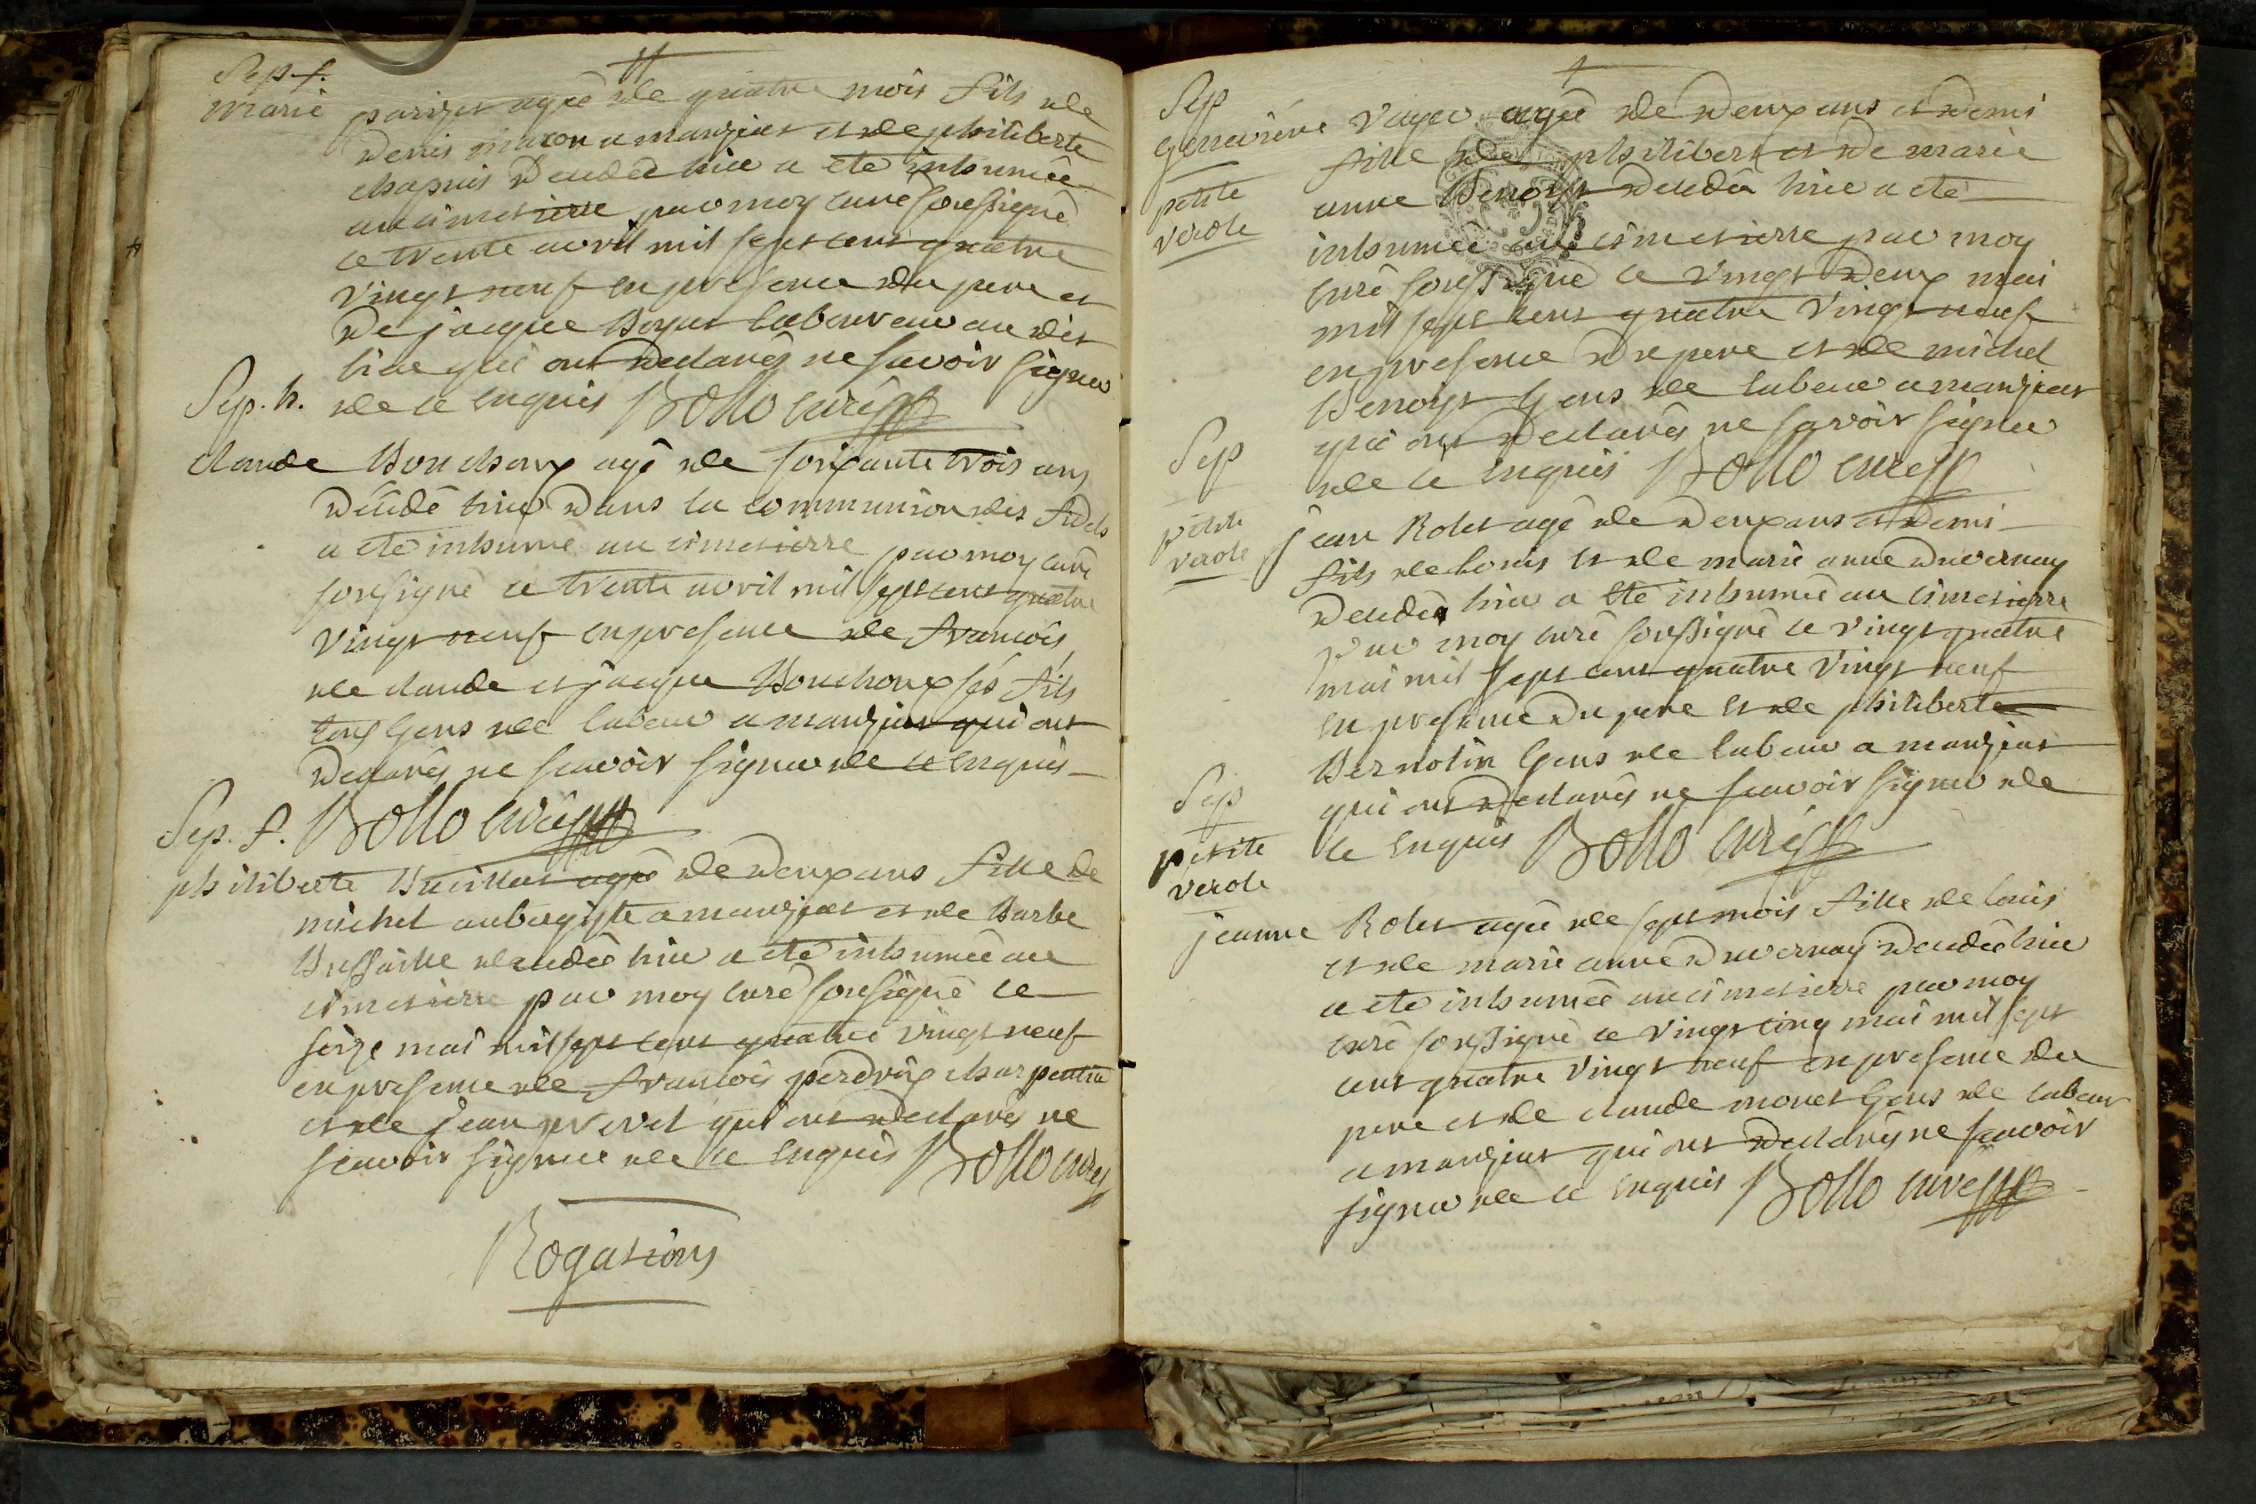 Sep. f.
marie parizet agée de quatre mois fils de
denis macon a manziat et de philiberte
chapuis decedée hier a été inhumée
au cimetierre par moy curé soussigné
ce trente avril mil sept cent quatre
vingt neuf en presence du pere et
de jacque Boyat laboureur au dit
lieu qui ont declarés ne scavoir signer
de ce enquis Bollo curé
Sep. h.
claude Bouchoux agé de soixante trois ans
décédé hier dans la communion des fidels
a été inhumé au cimetierre par moy curé
soussigné ce trente avril mil sept cent quatre
vingt neuf en presence de francois,
de claude et jacque Bouchoux ses fils
tous gens de labeur a manziat qui ont
declarés ne scavoir signer de ce enquis
Sep. f. Bollo curé
philiberte agée de deux ans fille de
michel aubergiste a manziat et de Barbe
decedée hier a été inhumée au
cimetierre par moy curé soussigné ce
seize mai mil sept cent quatre vingt neuf
en presence de francois perdrix charpentier
et de jean prevel qui ont declarés ne
scavoir signer de ce enquis Bollo curé
Rogations
Sep
genevieve Vayer agée de deux ans et demi
fille de philibert et de marie
petite
anne Benoit decedée hier a été
verole
inhumée au cimetierre par moy
curé soussigné ce vingt deux mai
mil sept cent quatre vingt neuf
en presence du pere et de michel
Benoit gens de labeur a manziat
qui ont declarés ne scavoir signer
Sep
de ce enquis Bollo curé
petite
verole
jean Rolet agé de deux ans et demi
fils de Louis et de marie anne Duvernay
decedé hier a été inhumée au cimetierre
par moy curé soussigné ce vingt quatre
mai mil sept cent quatre vingt neuf
en presence du pere et de philiberte
Bernolin gens de labeur a manziat
Sep
qui ont declarés ne scavoir signer de
petite
ce enquis Bollo curé
verole
jeanne Rolet agée de sept mois fille de louis
et de marie anne Duvernay decedée hier
a été inhumée au cimetierre par moy
curé soussigné ce vingt cinq mai mil sept
cent quatre vingt neuf en presence du
pere et de claude monet gens de labeur
a manziat qui ont declarés ne scavoir
signer de ce enquis Bollo curé